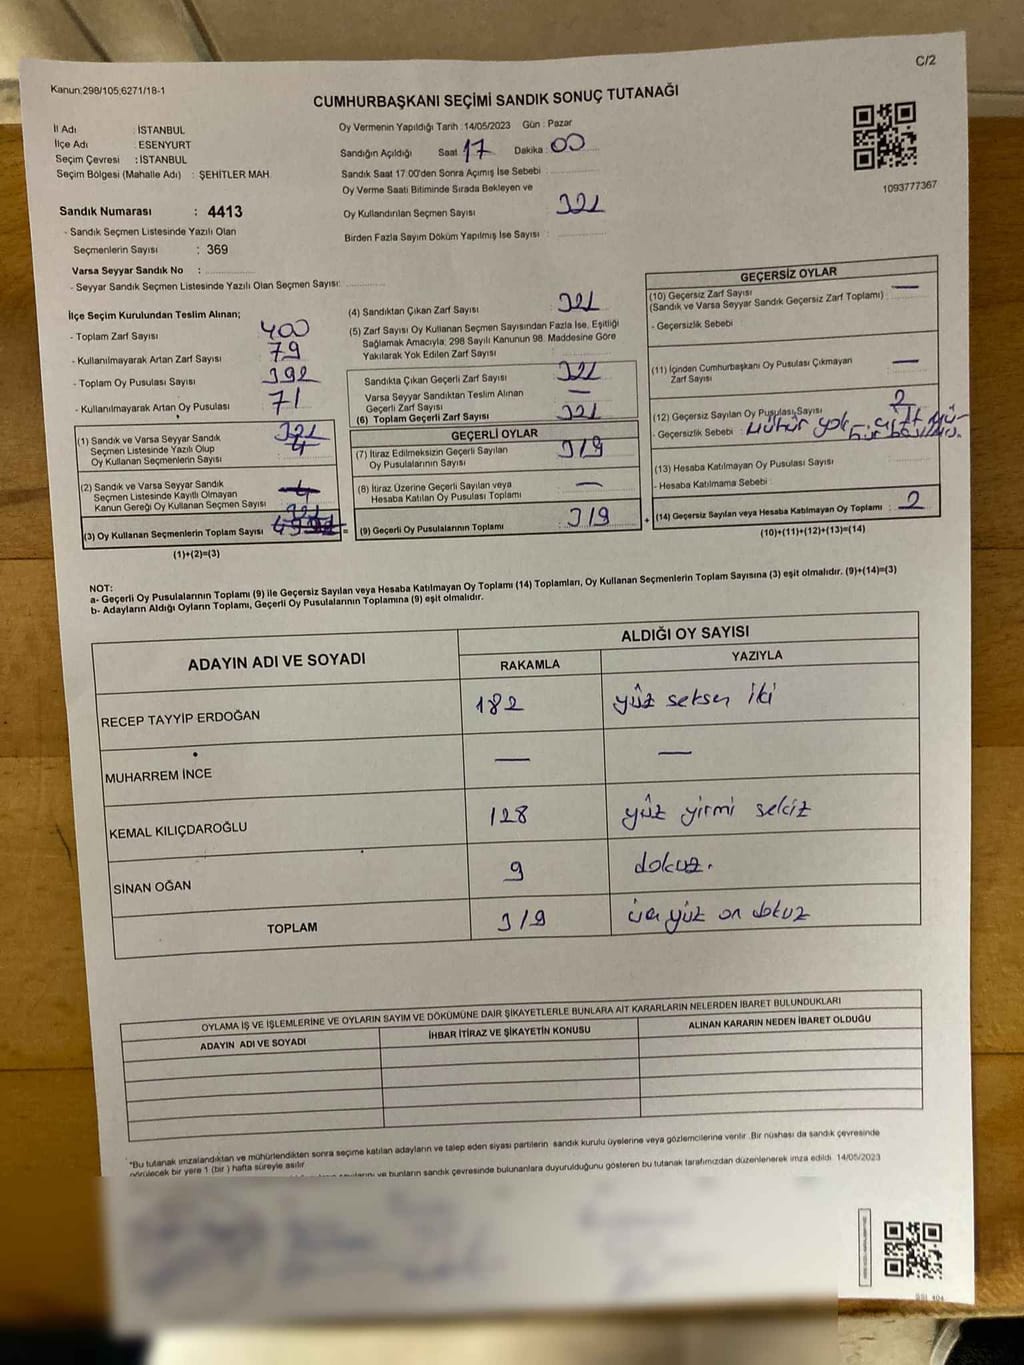 C/2
Kanun:298/105,6271/18-1
CUMHURBAŞKANI SEÇİMİ SANDIK SONUÇ TUTANAĞI
İl Adı : İSTANBUL
İlçe Adı : ESENYURT
Seçim Çevresi : İSTANBUL
Seçim Bölgesi (Mahalle Adı) : ŞEHİTLER MAH.
Sandık Numarası : 4413
- Sandık Seçmen Listesinde Yazılı Olan
Seçmenlerin Sayısı : 369
Varsa Seyyar Sandık No :
- Seyyar Sandık Seçmen Listesinde Yazılı Olan Seçmen Sayısı:
Oy Vermenin Yapıldığı Tarih :14/05/2023 Gün : Pazar
Sandığın Açıldığı Saat 17 Dakika : 00
Sandık Saat 17.00'den Sonra Açımış İse Sebebi :
Oy Verme Saati Bitiminde Sırada Bekleyen ve
Oy Kullandırılan Seçmen Sayısı 321
Birden Fazla Sayım Döküm Yapılmış İse Sayısı :
1093777367
İlçe Seçim Kurulundan Teslim Alınan;
- Toplam Zarf Sayısı : 400
- Kullanılmayarak Artan Zarf Sayısı : 79
- Toplam Oy Pusulası Sayısı : 392
- Kullanılmayarak Artan Oy Pusulası : 71
(1) Sandık ve Varsa Seyyar Sandık
Seçmen Listesinde Yazılı Olup
Oy Kullanan Seçmenlerin Sayısı 321
4
(2) Sandık ve Varsa Seyyar Sandık
Seçmen Listesinde Kayıtlı Olmayan
Kanun Gereği Oy Kullanan Seçmen Sayısı
(3) Oy Kullanan Seçmenlerin Toplam Sayısı 321
(1)+(2)=(3)
(4) Sandıktan Çıkan Zarf Sayısı 321
(5) Zarf Sayısı Oy Kullanan Seçmen Sayısından Fazla İse, Eşitliği
Sağlamak Amacıyla; 298 Sayılı Kanunun 98. Maddesine Göre
Yakılarak Yok Edilen Zarf Sayısı :
Sandıkta Çıkan Geçerli Zarf Sayısı : 321
Varsa Seyyar Sandıktan Teslim Alınan
Geçerli Zarf Sayısı : —
(6) Toplam Geçerli Zarf Sayısı : 321
GEÇERLİ OYLAR
(7) İtiraz Edilmeksizin Geçerli Sayılan
Oy Pusulalarının Sayısı : 319
(8) İtiraz Üzerine Geçerli Sayılan veya
Hesaba Katılan Oy Pusulası Toplamı : —
(9) Geçerli Oy Pusulalarının Toplamı : 319
GEÇERSİZ OYLAR
(10) Geçersiz Zarf Sayısı : —
(Sandık ve Varsa Seyyar Sandık Geçersiz Zarf Toplamı)
- Geçersizlik Sebebi :
(11) İçinden Cumhurbaşkanı Oy Pusulası Çıkmayan
Zarf Sayısı : —
(12) Geçersiz Sayılan Oy Pusulası Sayısı : 2
- Geçersizlik Sebebi : Mühür yok, çift mü-
hür
(13) Hesaba Katılmayan Oy Pusulası Sayısı :
- Hesaba Katılmama Sebebi :
(14) Geçersiz Sayılan veya Hesaba Katılmayan Oy Toplamı : 2
(10)+(11)+(12)+(13)=(14)
NOT:
a- Geçerli Oy Pusulalarının Toplamı (9) ile Geçersiz Sayılan veya Hesaba Katılmayan Oy Toplamı (14) Toplamları, Oy Kullanan Seçmenlerin Toplam Sayısına (3) eşit olmalıdır. (9)+(14)=(3)
b- Adayların Aldığı Oyların Toplamı, Geçerli Oy Pusulalarının Toplamına (9) eşit olmalıdır.
ADAYIN ADI VE SOYADI
ALDIĞI OY SAYISI
RAKAMLA YAZIYLA
RECEP TAYYİP ERDOĞAN 182 yüz seksen iki
MUHARREM İNCE — —
KEMAL KILIÇDAROĞLU 128 yüz yirmi sekiz
SİNAN OĞAN 9 dokuz.
TOPLAM 319 üç yüz on dokuz
OYLAMA İŞ VE İŞLEMLERİNE VE OYLARIN SAYIM VE DÖKÜMÜNE DAİR ŞİKAYETLERLE BUNLARA AİT KARARLARIN NELERDEN İBARET BULUNDUKLARI
ADAYIN ADI VE SOYADI İHBAR İTİRAZ VE ŞİKAYETİN KONUSU ALINAN KARARIN NEDEN İBARET OLDUĞU
*Bu tutanak imzalandıktan ve mühürlendikten sonra seçime katılan adayların ve talep eden siyasi partilerin sandık kurulu üyelerine veya gözlemcilerine verilir .Bir nüshası da sandık çevresinde
görülecek bir yere 1 (bir ) hafta süreyle asılır.
ve bunların sandık çevresinde bulunanlara duyurulduğunu gösteren bu tutanak tarafımızdan düzenlenerek imza edildi. 14/05/2023